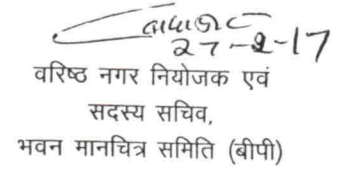 27-2-17
वरिष्ठ नगर नियोजक एवं
सदस्य सचिव,
भवन मानचित्र समिति (बीपी)